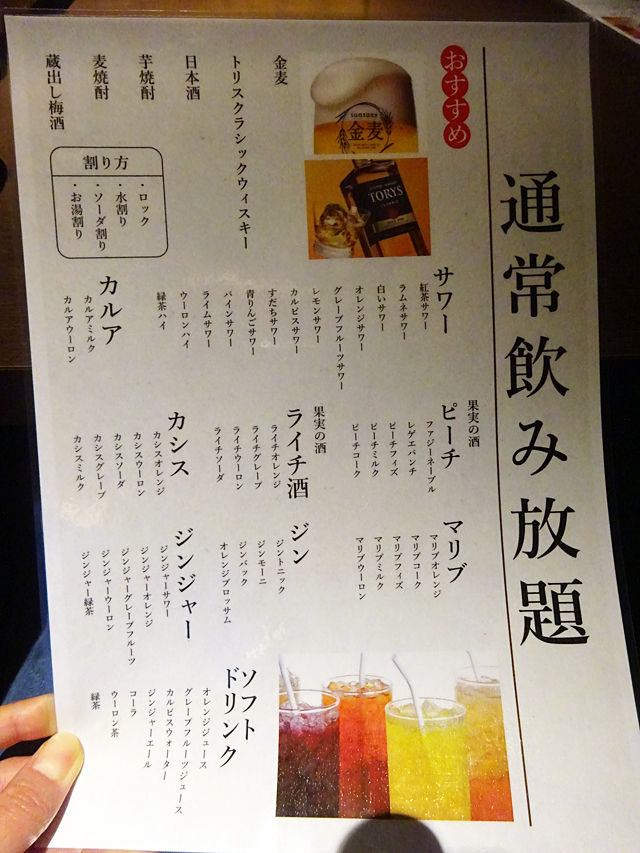 通常飲み放題
おすすめ
SUNTORY
金麦
TORYS
CLASSIC
金麦
トリスクラシックウィスキー
日本酒
芋焼酎
麦焼酎
蔵出し梅酒
割り方
・ロック
・水割り
・ソーダ割り
・お湯割り
サワー
紅茶サワー
ラムネサワー
白いサワー
オレンジサワー
グレープフルーツサワー
レモンサワー
カルピスサワー
すだちサワー
青りんごサワー
パインサワー
ライムサワー
ウーロンハイ
緑茶ハイ
カルア
カルアミルク
カルアウーロン
果実の酒
ピーチ
ファジーネーブル
レゲエパンチ
ピーチフィズ
ピーチミルク
ピーチコーク
果実の酒
ライチ酒
ライチオレンジ
ライチグレープ
ライチウーロン
ライチソーダ
カシス
カシスオレンジ
カシスウーロン
カシスソーダ
カシスグレープ
カシスミルク
マリブ
マリブオレンジ
マリブコーク
マリブフィズ
マリブミルク
マリブウーロン
ジン
ジントニック
ジンモーニ
ジンバック
オレンジブロッサム
ジンジャー
ジンジャーサワー
ジンジャーオレンジ
ジンジャーグレープフルーツ
ジンジャーウーロン
ジンジャー緑茶
ソフト
ドリンク
オレンジジュース
グレープフルーツジュース
カルピスウォーター
ジンジャーエール
コーラ
ウーロン茶
緑茶